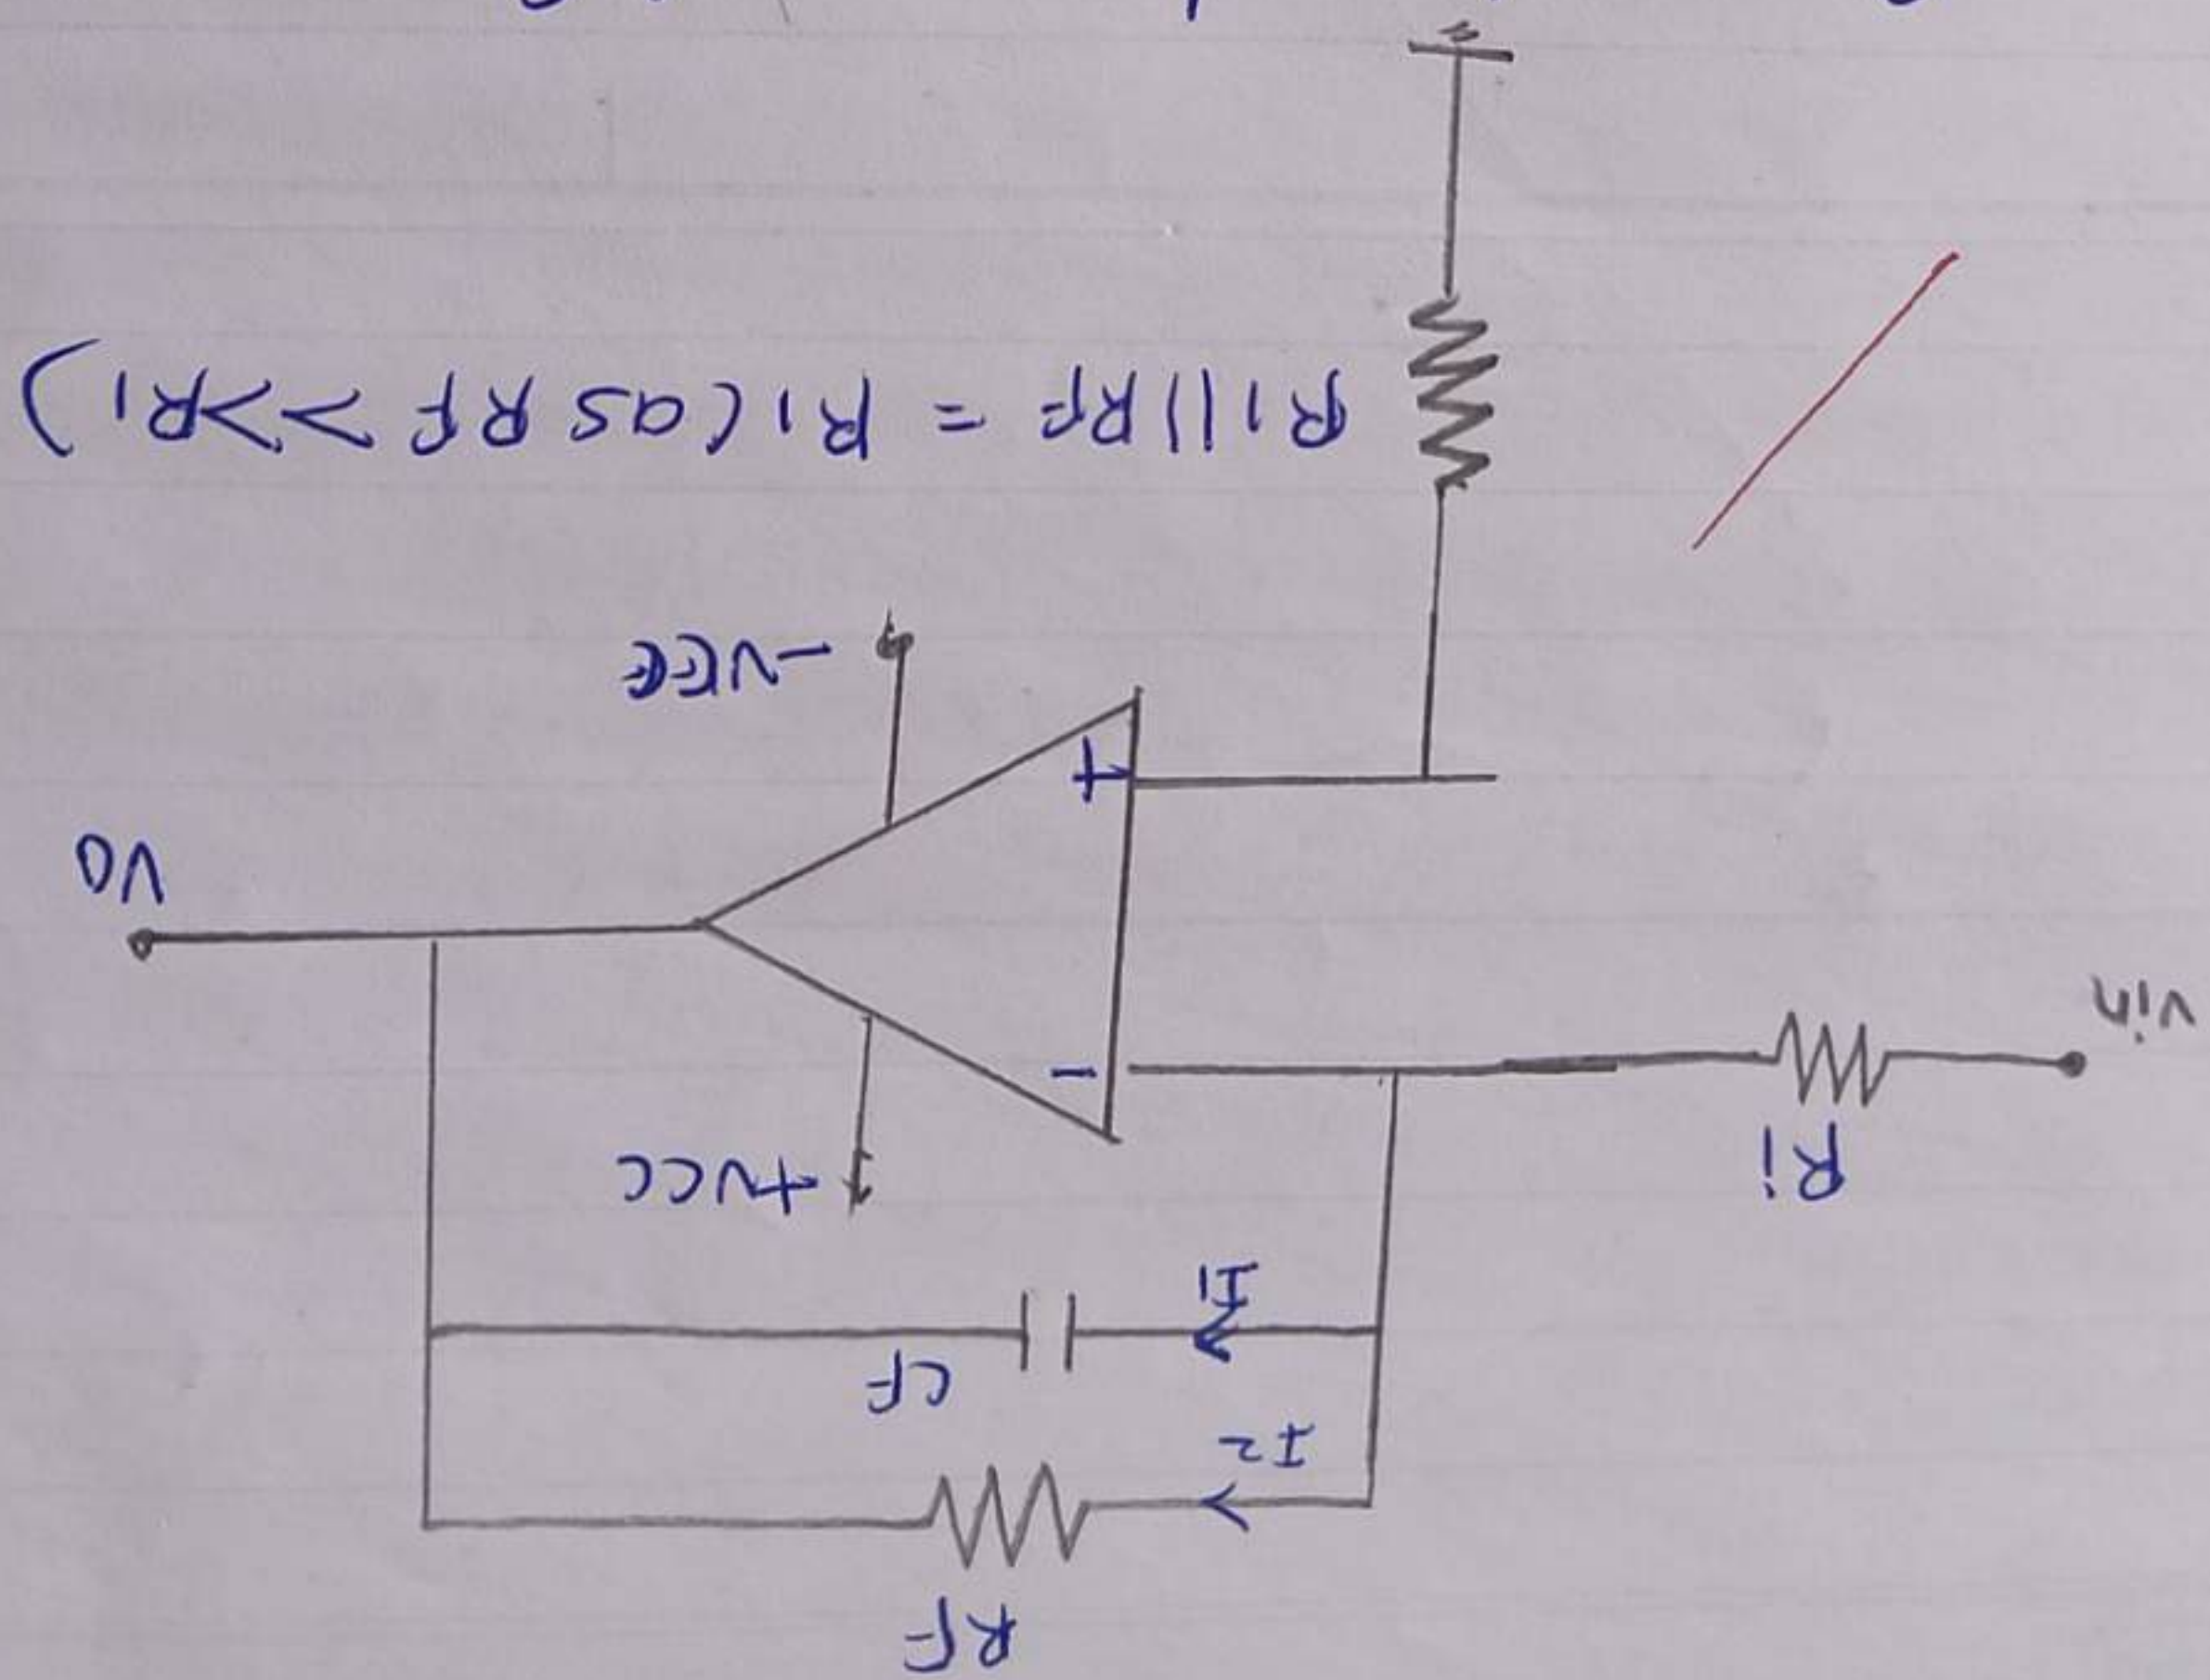 RF
I2
CF
I1
+VCC
Ri
vin
-
VO
+
-VEE
R1||RF = R1(as RF >>R1)